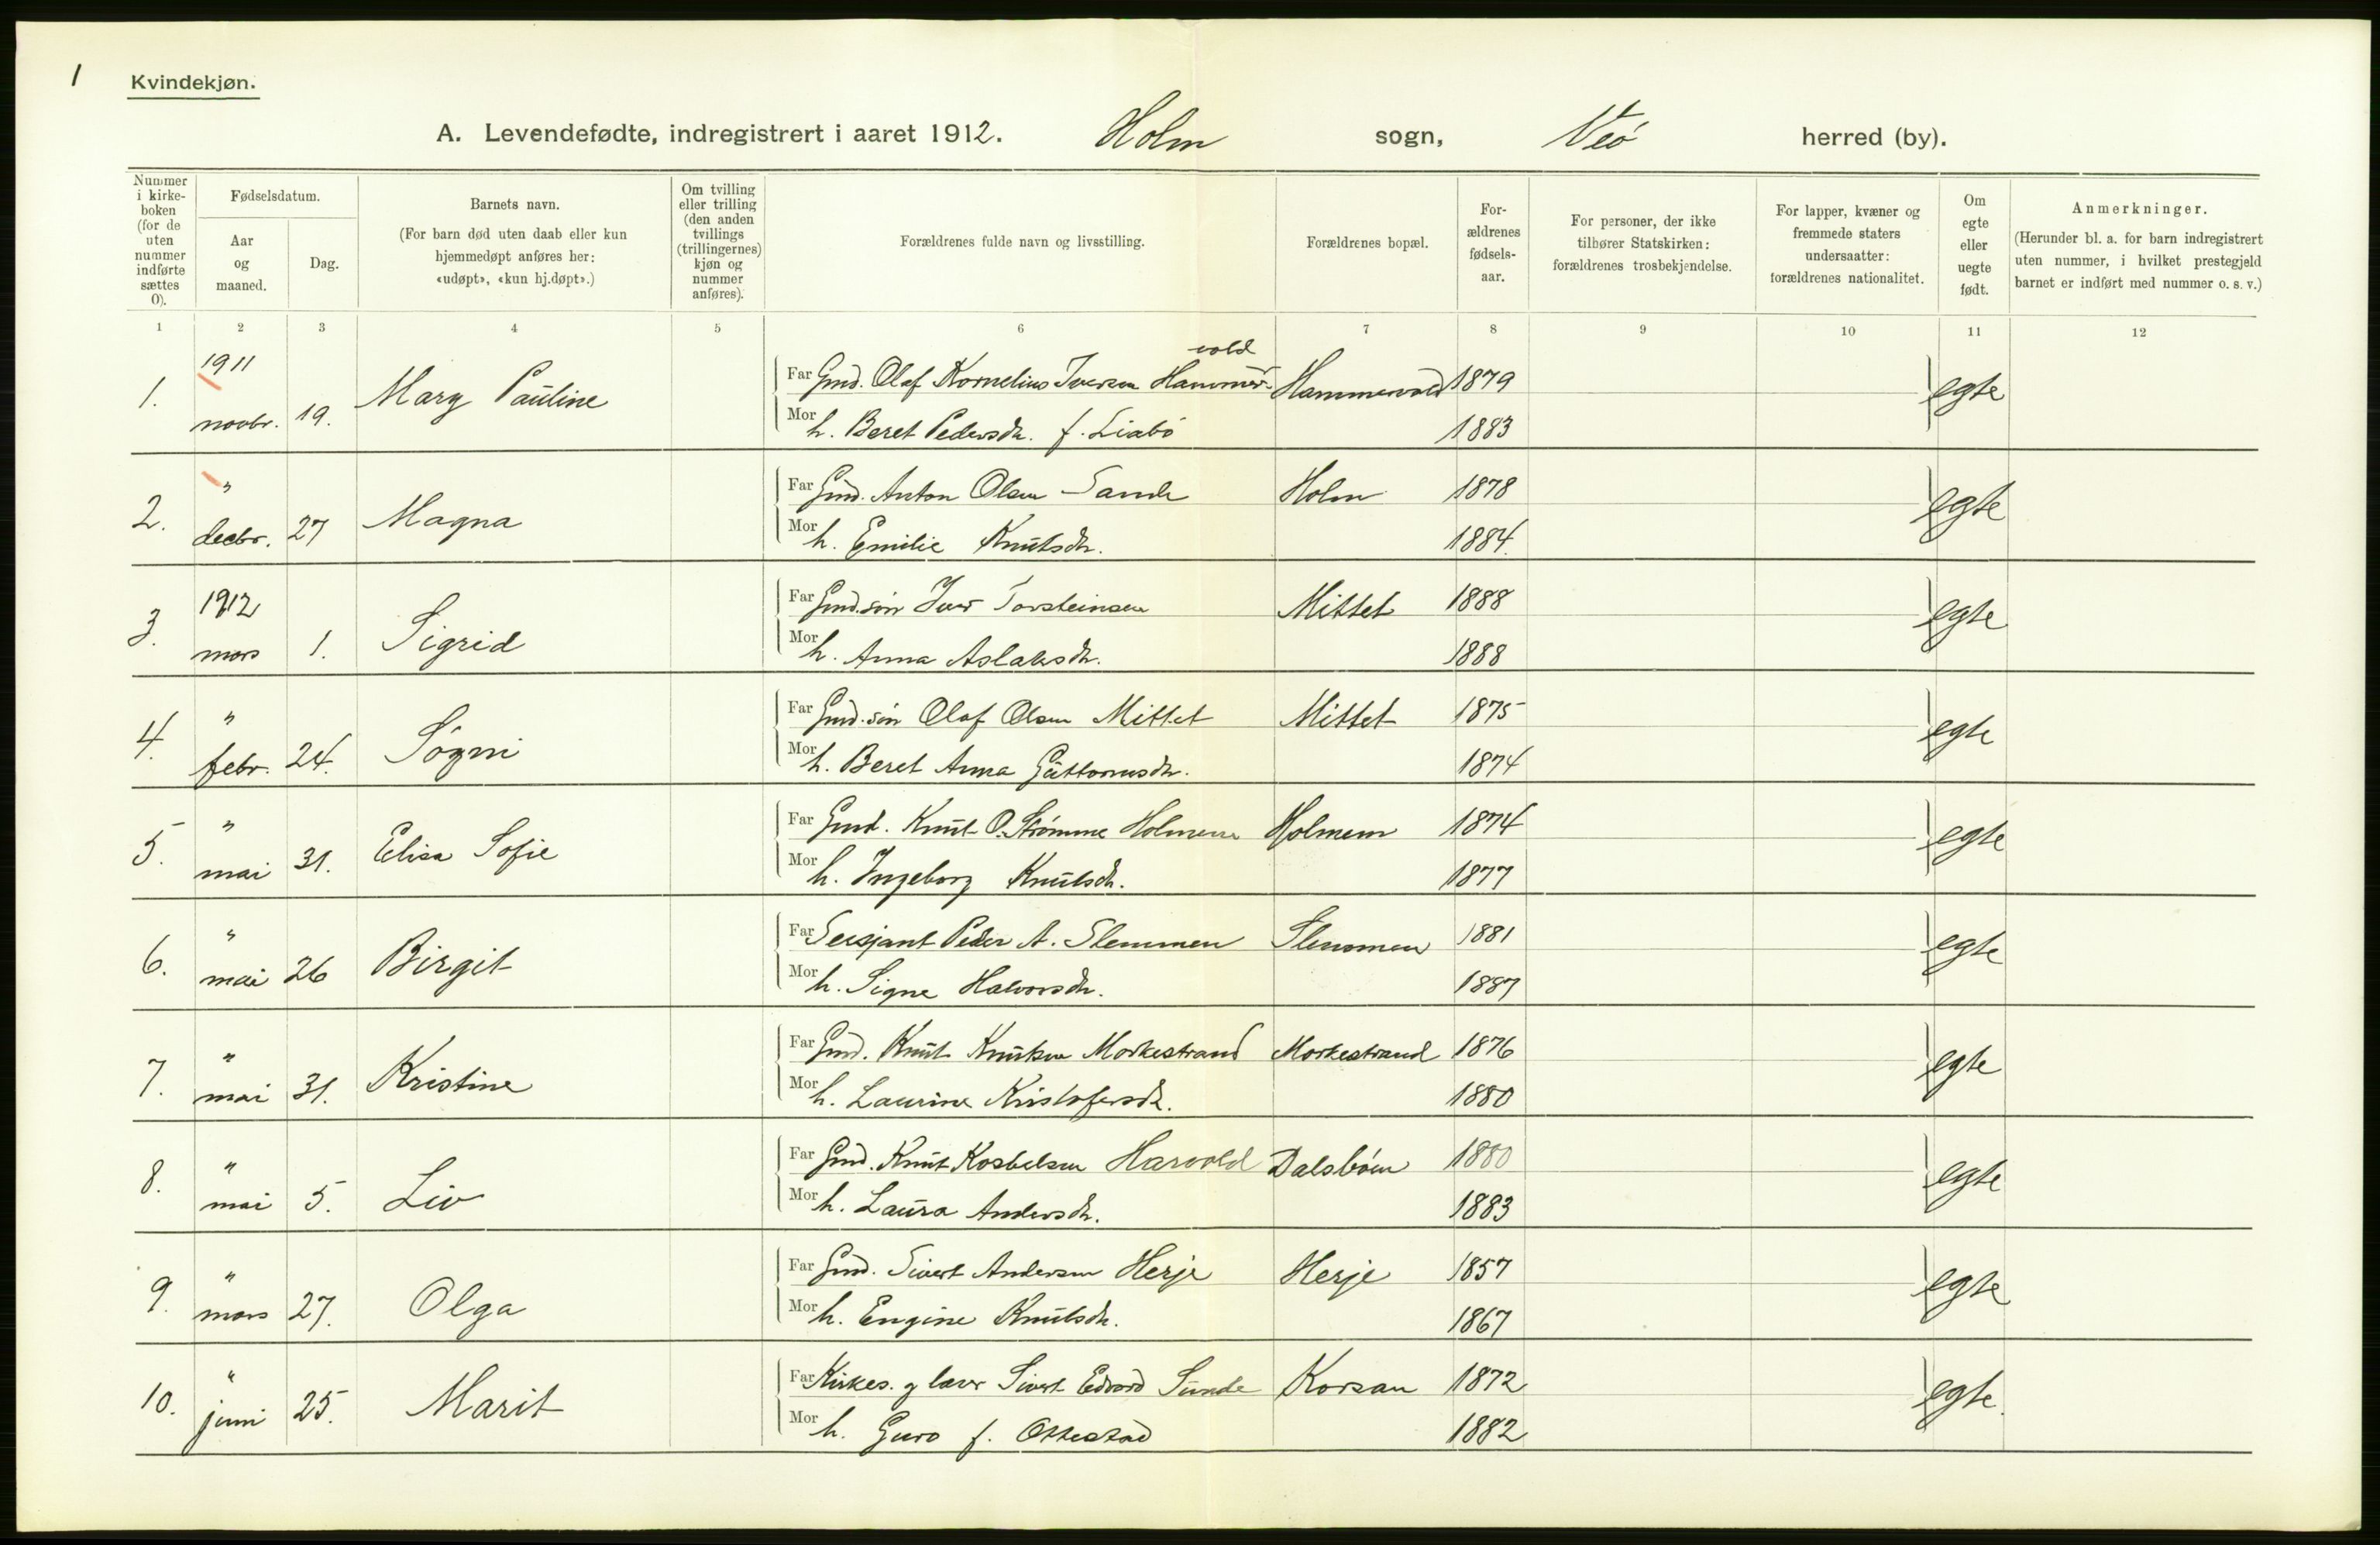 1
Kvindekjøn.
A. Levendefødte, indregistrert i aaret 1912. Holm sogn, Veö herred (by).
Nummer i kirke-boken (for de uten nummer indførte sættes 0).
Fødselsdatum.
Aar og maaned.
Dag.
Barnets navn.
(For barn død uten daab eller kun hjemmedøpt anføres her: «udøpt», «kun hj.døpt».)
Om tvilling eller trilling (den anden tvillings (trillingernes) kjøn og nummer anføres).
Forældrenes fulde navn og livsstilling.
Forældrenes bopæl.
For-ældrenes fødsels-aar.
For personer, der ikke tilhører Statskirken: forældrenes trosbekjendelse.
For lapper, kvæner og fremmede staters undersaatter: forældrenes nationalitet.
Om egte eller uegte født.
Anmerkninger.
(Herunder bl. a. for barn indregistrert uten nummer, i hvilket prestegjeld barnet er indført med nummer o. s. v.)
1 2 3 4 5 6 7 8 9 10 11 12
1. 1911 novbr. 19. Mary Pauline
Far Gmd. Olaf Kornelius Iversen Hammervold Hammervold 1879 egte
Mor h. Beret Pedersdtr. f. Liabö 1883
2. " decbr. 27 Magna
Far Gmd. Anton Olsen Sande Holm 1878 egte
Mor h. Emilie Knutsdtr. 1884.
3. 1912 mars 1. Sigrid
Far Gmd.sön Iver Torsteinsen Mittet 1888 egte
Mor h. Anna Aslaksdtr. 1888
4. " febr. 24. Sögni
Far Gmd.sön Olaf Olsen Mittet Mittet 1875 egte
Mor h. Beret Anna Guttormsdtr. 1874
5. " mai 31. Elisa Sofie
Far Gmd. Knut O. Strømme Holmem Holmem 1874 egte
Mor h. Ingeborg Knutsdtr. 1877
6. " mai 26 Birgit
Far Sersjant Peder A. Slemmen Slemmen 1881 egte
Mor h. Signe Halvorsdtr. 1887
7. " mai 31. Kristine
Far Gmd. Knut Knutsen Morkestrand Morkestrand 1876 egte
Mor h. Laurine Kristofersdtr. 1880
8. " mai 5. Liv
Far Gmd. Knut Kosbelsen Harvold Dalsböen 1880 egte
Mor h. Laura Andersdtr. 1883
9. " mars 27. Olga
Far Gmd. Sivert Andersen Herje Herje 1857 egte
Mor h. Engine Knutsdtr. 1867
10. " juni 25. Marit
Far Kirkes. og lærer Sivert Edvard Sunde Korsan 1872 egte.
Mor h. Guro f. Ottestad 1882